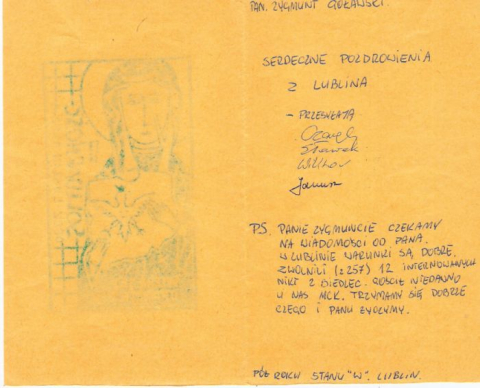 PAN. ZYGMUNT GOŁAWSKI.
SERDECZNE POZDROWIENIA
Z LUBLINA
- PRZESYŁAJĄ
Sławek
Janusz
PS PANIE ZYGMUNCIE CZEKAMY
NA WIADOMOŚCI OD PANA.
W LUBLINIE WARUNKI SĄ DOBRE.
ZWOLNILI (Z 257) 12 INTERNOWANYCH
NIKT Z SIEDLEC. GOŚCIE NIEDAWNO
U NAS MCK. TRZYMAMY SIĘ DOBRZE
CZEGO I PANU ŻYCZYMY.
PÓŁ ROKU STANU "W". LUBLIN.